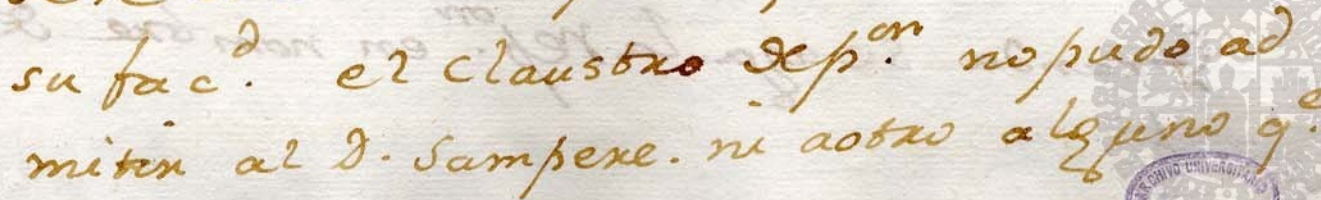 su fac.d el Claustro dep.on no pudo ad
mitir al D. Sampere. ni aotro alguno q.e
ARCHIVO UNIVERSITARIO